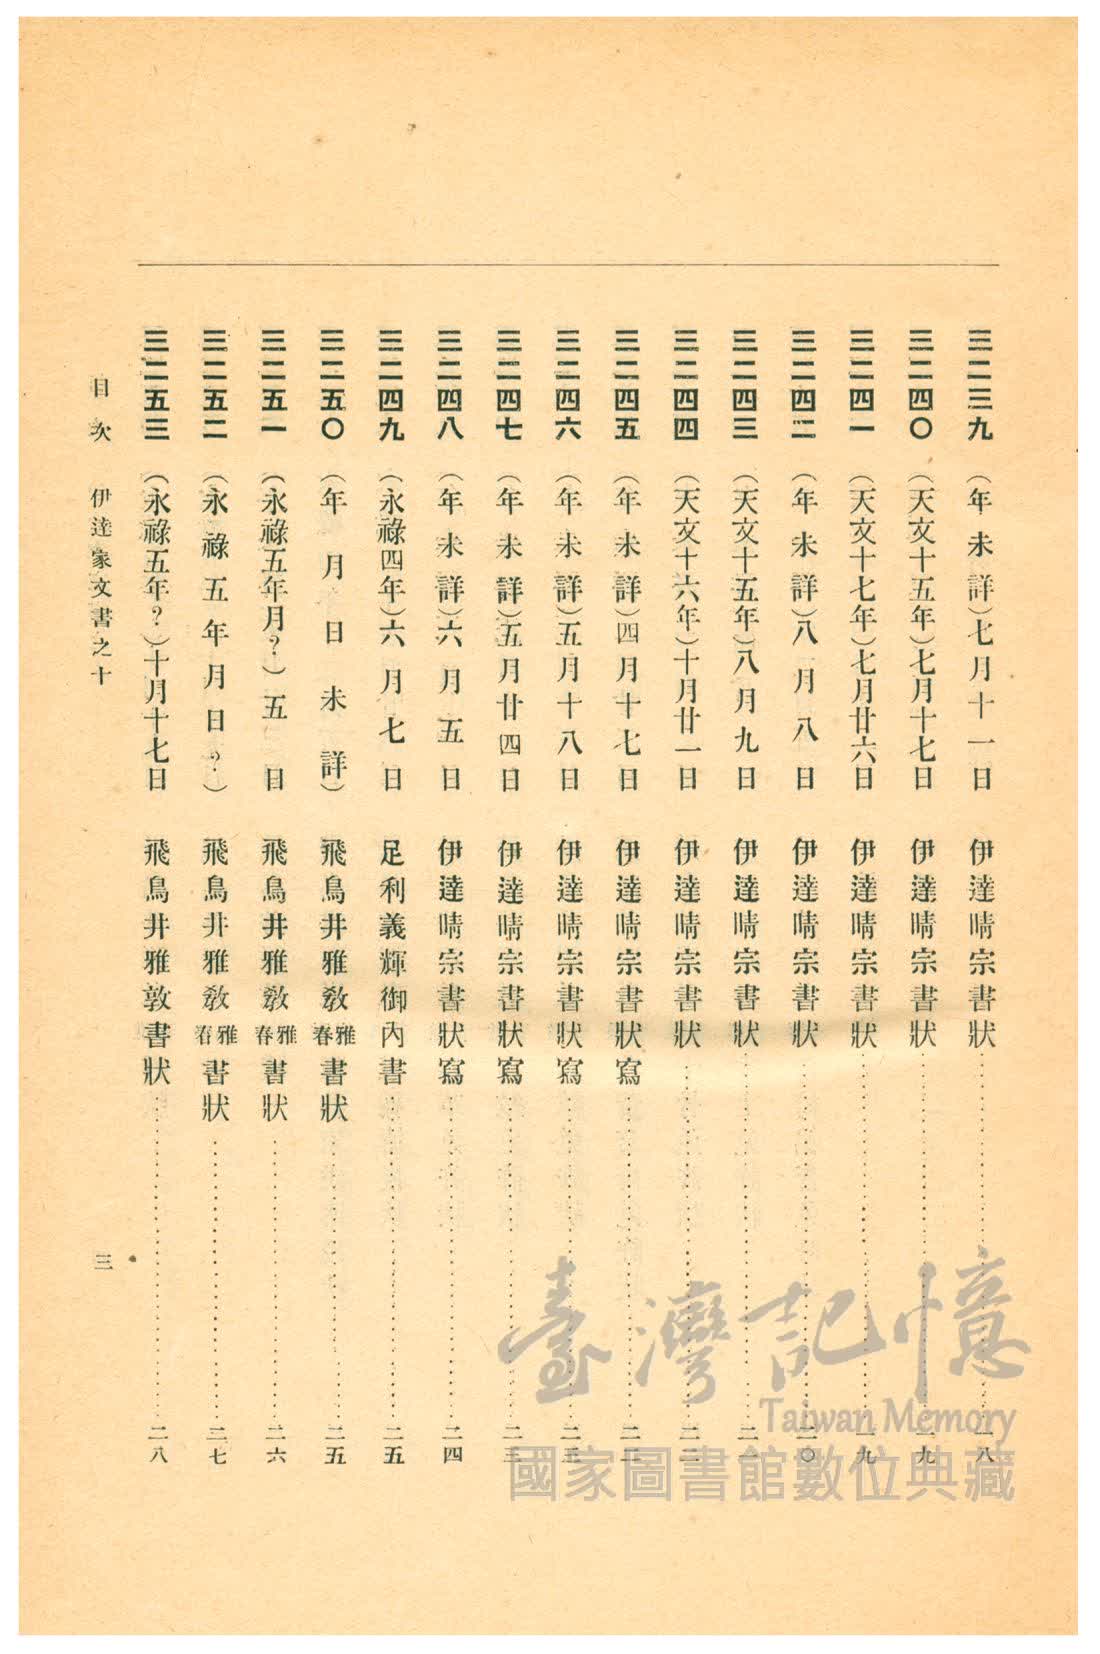 三二三九 (年未詳)七月十一日 伊達晴宗書狀……一八
三二四〇 (天文十五年)七月十七日 伊達晴宗書狀……一九
三二四一 (天文十七年)七月廿六日 伊達晴宗書狀……一九
三二四二 (年未詳)八月八日 伊達晴宗書狀……二〇
三二四三 (天文十五年)八月九日 伊達晴宗書狀……二一
三二四四 (天文十六年)十月廿一日 伊達晴宗書狀……二二
三二四五 (年未詳)四月十七日 伊達晴宗書狀寫……二二
三二四六 (年未詳)五月十八日 伊達晴宗書狀寫……二三
三二四七 (年未詳)五月廿四日 伊達晴宗書狀寫……二三
三二四八 (年未詳)六月五日 伊達晴宗書狀寫……二四
三二四九 (永祿四年)六月七日 足利義輝御內書……二五
三二五〇 (年月日未詳) 飛鳥井雅敎雅春書狀……二五
三二五一 (永祿五年月?)五日 飛鳥井雅敎雅春書狀……二六
三二五二 (永祿五年月日?) 飛鳥井雅敎雅春書狀……二七
三二五三 (永祿五年?)十月十七日 飛鳥井雅敦書狀……二八
目次 伊達家文書之十 三
臺灣記憶
Taiwan Memory
國家圖書館數位典藏